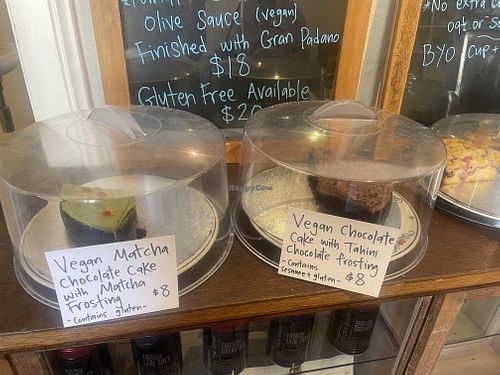 Olive Sauce (vegan)
Finished with Gran Padano
$18
Gluten Free Available
$20
*No extra c
oat or so
BYO Cup
HappyCow
Vegan Matcha
Chocolate Cake
with Matcha
Frosting $8
-contains gluten-
Vegan Chocolate
Cake with Tahini
Chocolate frosting
-Contains
sesame + gluten- $8
ENGLISH
BREAKFAST
EARL GREY